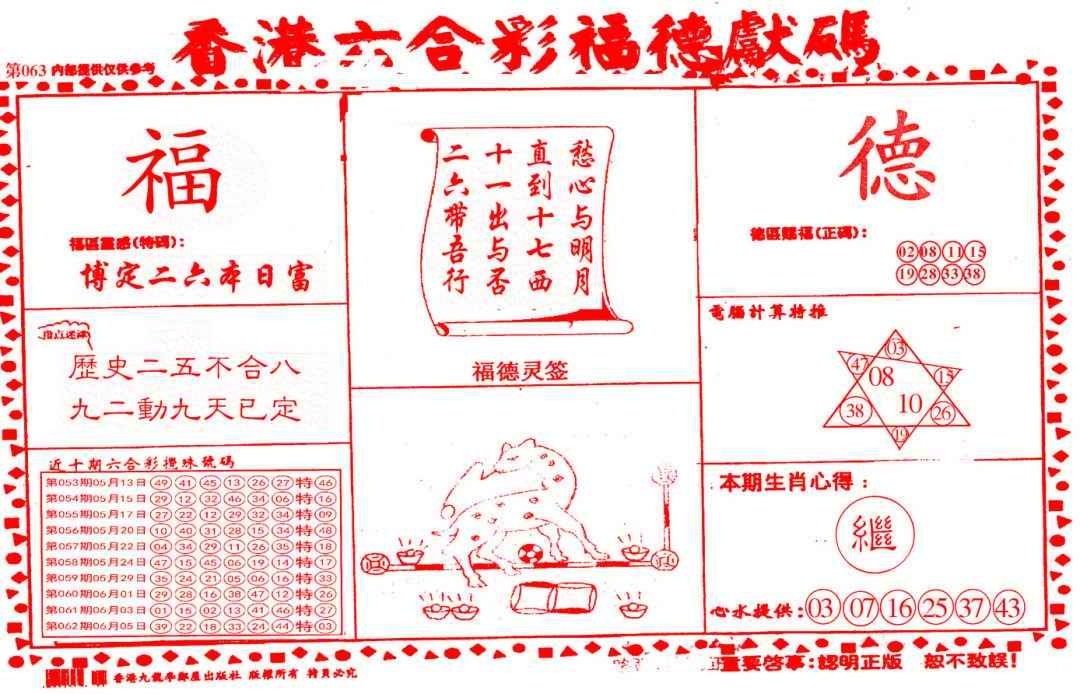 香港六合彩福德獻碼
第063 內部提供仅供参考
福
福區靈感(特碼):
博定二六本日富
指点迷津
歷史二五不合八
九二動九天已定
近十期六合彩攪珠號碼
第053期05月13日 49 41 45 13 26 27 特 46
第054期05月15日 29 12 32 46 34 06 特 16
第055期05月17日 27 22 12 29 32 34 特 09
第056期05月20日 10 40 31 28 15 34 特 48
第057期05月22日 04 34 29 11 26 35 特 18
第058期05月24日 47 15 45 06 19 14 特 17
第059期05月29日 35 24 21 05 06 16 特 33
第060期06月01日 29 28 16 38 47 12 特 26
第061期06月03日 01 15 02 13 41 46 特 27
第062期06月05日 39 22 18 33 24 44 特 03
愁心与明月
直到十七西
十一出与否
二六带吾行
福德灵签
德
德區賜福(正碼):
02 08 11 15
19 28 33 38
電腦計算特推
03
47 08 15
38 10 26
19
本期生肖心得:
繼
心水提供: 03 07 16 25 37 43
香港九龍學鄰屋出版社 版權所有 拷貝必究
重要啓事:認明正版 恕不致誤!